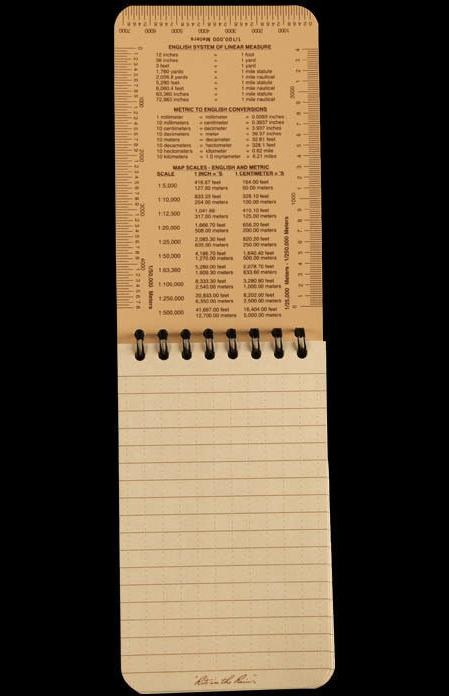 7000 6000 5000 4000 3000 2000 1000
1/100,000 Meters
ENGLISH SYSTEM OF LINEAR MEASURE
12 inches = 1 foot
36 inches = 1 yard
3 feet = 1 yard
1,760 yards = 1 mile statute
2,026.8 yards = 1 mile nautical
5,280 feet = 1 mile statute
6,080.4 feet = 1 mile nautical
63,360 inches = 1 mile statute
72,963 inches = 1 mile nautical
METRIC TO ENGLISH CONVERSIONS
1 millimeter = millimeter = 0.0393 inches
10 millimeters = centimeter = 0.3937 inches
10 centimeters = decimeter = 3.937 inches
10 decimeters = meter = 39.37 inches
10 meters = decameter = 32.81 feet
10 decameters = hectometer = 328.1 feet
10 hectometers = kilometer = 0.62 mile
10 kilometers = 1.0 myriameter = 6.21 miles
MAP SCALES - ENGLISH AND METRIC
SCALE 1 INCH = 'S 1 CENTIMETER = 'S
1:5,000 416.67 feet 164.00 feet
127.00 meters 50.00 meters
1:10,000 833.33 feet 328.10 feet
254.00 meters 100.00 meters
1:12,500 1,041.66 410.10 feet
317.00 meters 125.00 meters
1:20,000 1,666.70 feet 656.20 feet
508.00 meters 200.00 meters
1:25,000 2,083.30 feet 820.20 feet
635.00 meters 250.00 meters
1:50,000 4,166.70 feet 1,640.40 feet
1,270.00 meters 500.00 meters
1:63,360 5,280.00 feet 2,078.70 feet
1,609.30 meters 633.60 meters
1:100,000 8,333.30 feet 3,280.80 feet
2,540.00 meters 1,000.00 meters
1:250,000 20,833.00 feet 8,202.00 feet
6,350.00 meters 2,500.00 meters
1:500,000 41,667.00 feet 16,404.00 feet
12,700.00 meters 5,000.00 meters
1/50,000 Meters
1/25,000 Meters - 1/250,000 Meters
"Rite in the Rain"